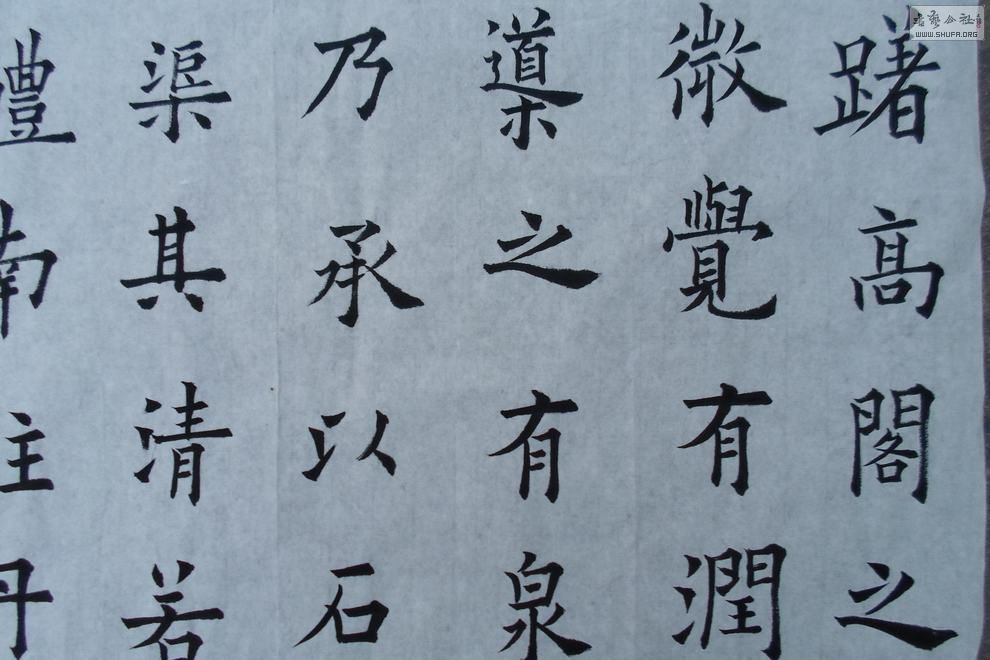 躇高閣之
微覺有潤
導之有泉
乃承以石
渠其清若
醴南注丹
書藝公社
WWW.SHUFA.ORG